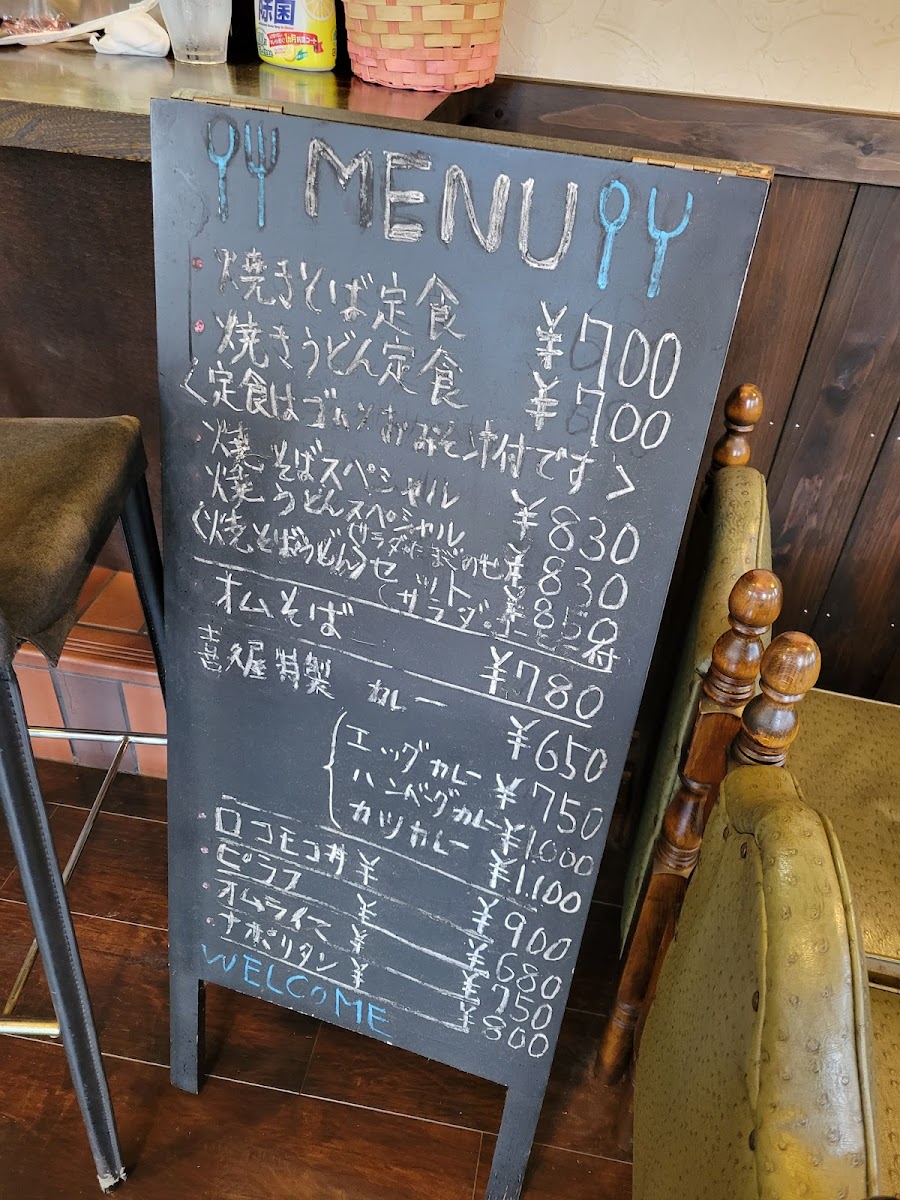 MENU
焼きそば定食 ¥700
焼きうどん定食 ¥700
〈定食はゴハンおみそ汁付です〉
焼そばスペシャル ¥830
焼うどんスペシャル ¥830
(焼そばうどん)セット ¥850
オムそば ¥780
喜久屋特製 カレー ¥650
エッグカレー ¥750
ハンバーグカレー ¥1.000
カツカレー ¥1.100
ロコモコ丼 ¥ ¥900
ピラフ ¥ ¥680
オムライス ¥ ¥750
ナポリタン ¥ ¥800
WELCOME